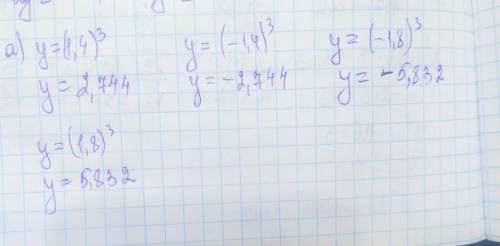 а) y=(1,4)³ y=(-1,4)³ y=(-1,8)³
y=2,744 y=-2,744 y=-5,832
y=(1,8)³
y=5,832